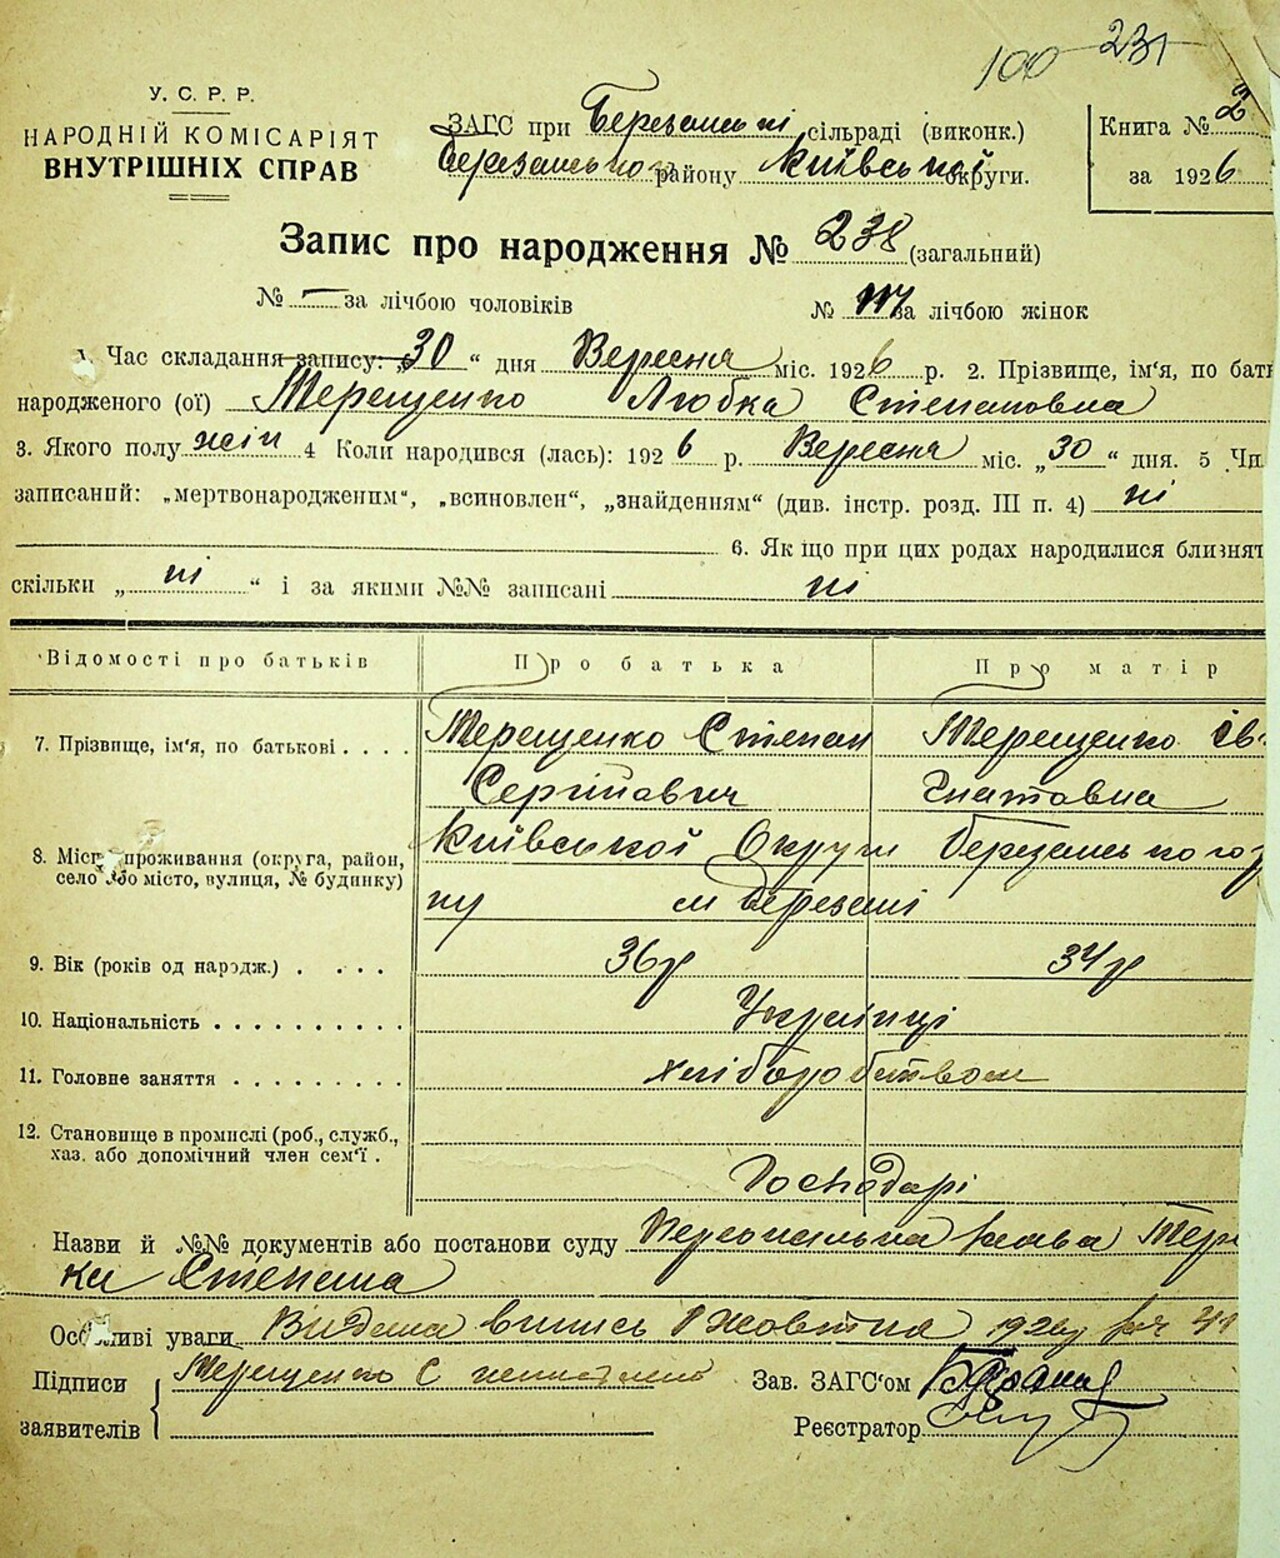 100 231
У. С. Р. Р.
НАРОДНІЙ КОМІСАРІЯТ
ВНУТРІШНІХ СПРАВ
ЗАГС при Березанські сільраді (виконк.)
Березанського району Київської округи.
Книга № 2
за 1926
Запис про народження № 238 (загальний)
№ — за лічбою чоловіків № 117 за лічбою жінок
1. Час складання запису: „30“ дня Вересня міс. 1926 р. 2. Прізвище, ім'я, по бать
народженого (ої) Терещенко Любка Степановна
3. Якого полу жін 4 Коли народився (лась): 1926 р. Вересня міс. „30“ дня. 5 Чи
записаний: „мертвонародженим“, „всиновлен“, „знайденням“ (див. інстр. розд. III п. 4) ні
6. Якщо при цих родах народилися близнят
скільки „ні“ і за якими №№ записані ні
Відомості про батьків Про батька Про матір
7. Прізвище, ім'я, по батькові . . . . Терещенко Степан Терещенко Єв
Сергійович Гнатовна
8. Місце проживання (округа, район, Київської Округи Березанського
село або місто, вулиця, № будинку) ну м Березані
9. Вік (років од народж.) . . . . 36р 34р
10. Національність . . . . . . . . . . Українці
11. Головне заняття . . . . . . . . . хліборобством
12. Становище в промислі (роб., служб.,
хаз. або допомічний член сем'ї . Господарі
Назви й №№ документів або постанови суду Персональна заява Тере
ка Степана
Особливі уваги Видана випись 1 жовтня 1926р
Підписи Терещенко С Зав. ЗАГС'ом
заявителів Реєстратор